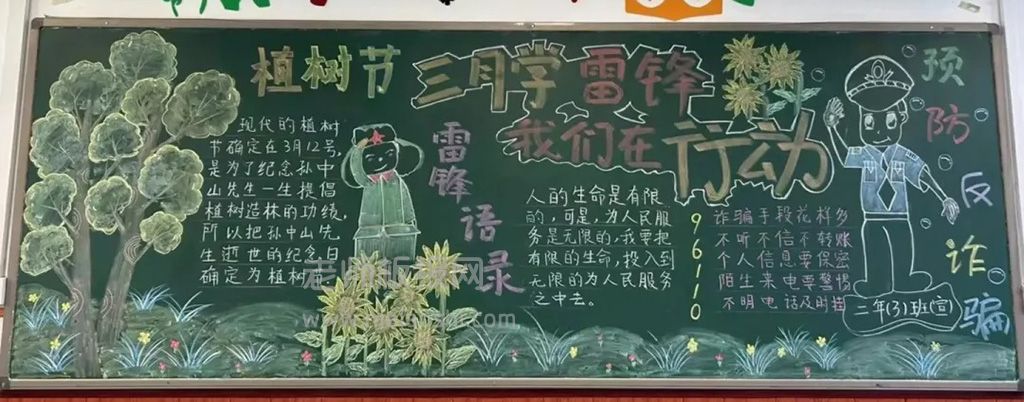 植树节
现代的植树
节确定在3月12号,
是为了纪念孙中
山先生一生提倡
植树造林的功绩,
所以把孙中山先
生逝世的纪念日
确定为植树
三月学雷锋
我们在行动
雷锋语录
人的生命是有限
的,可是,为人民服
务是无限的,我要把
有限的生命,投入到
无限的为人民服务
之中去。
96110
诈骗手段花样多
不听不信不转账
个人信息要保密
陌生来电要警惕
不明电话及时挂
预防反诈骗
二年(3)班(宣)